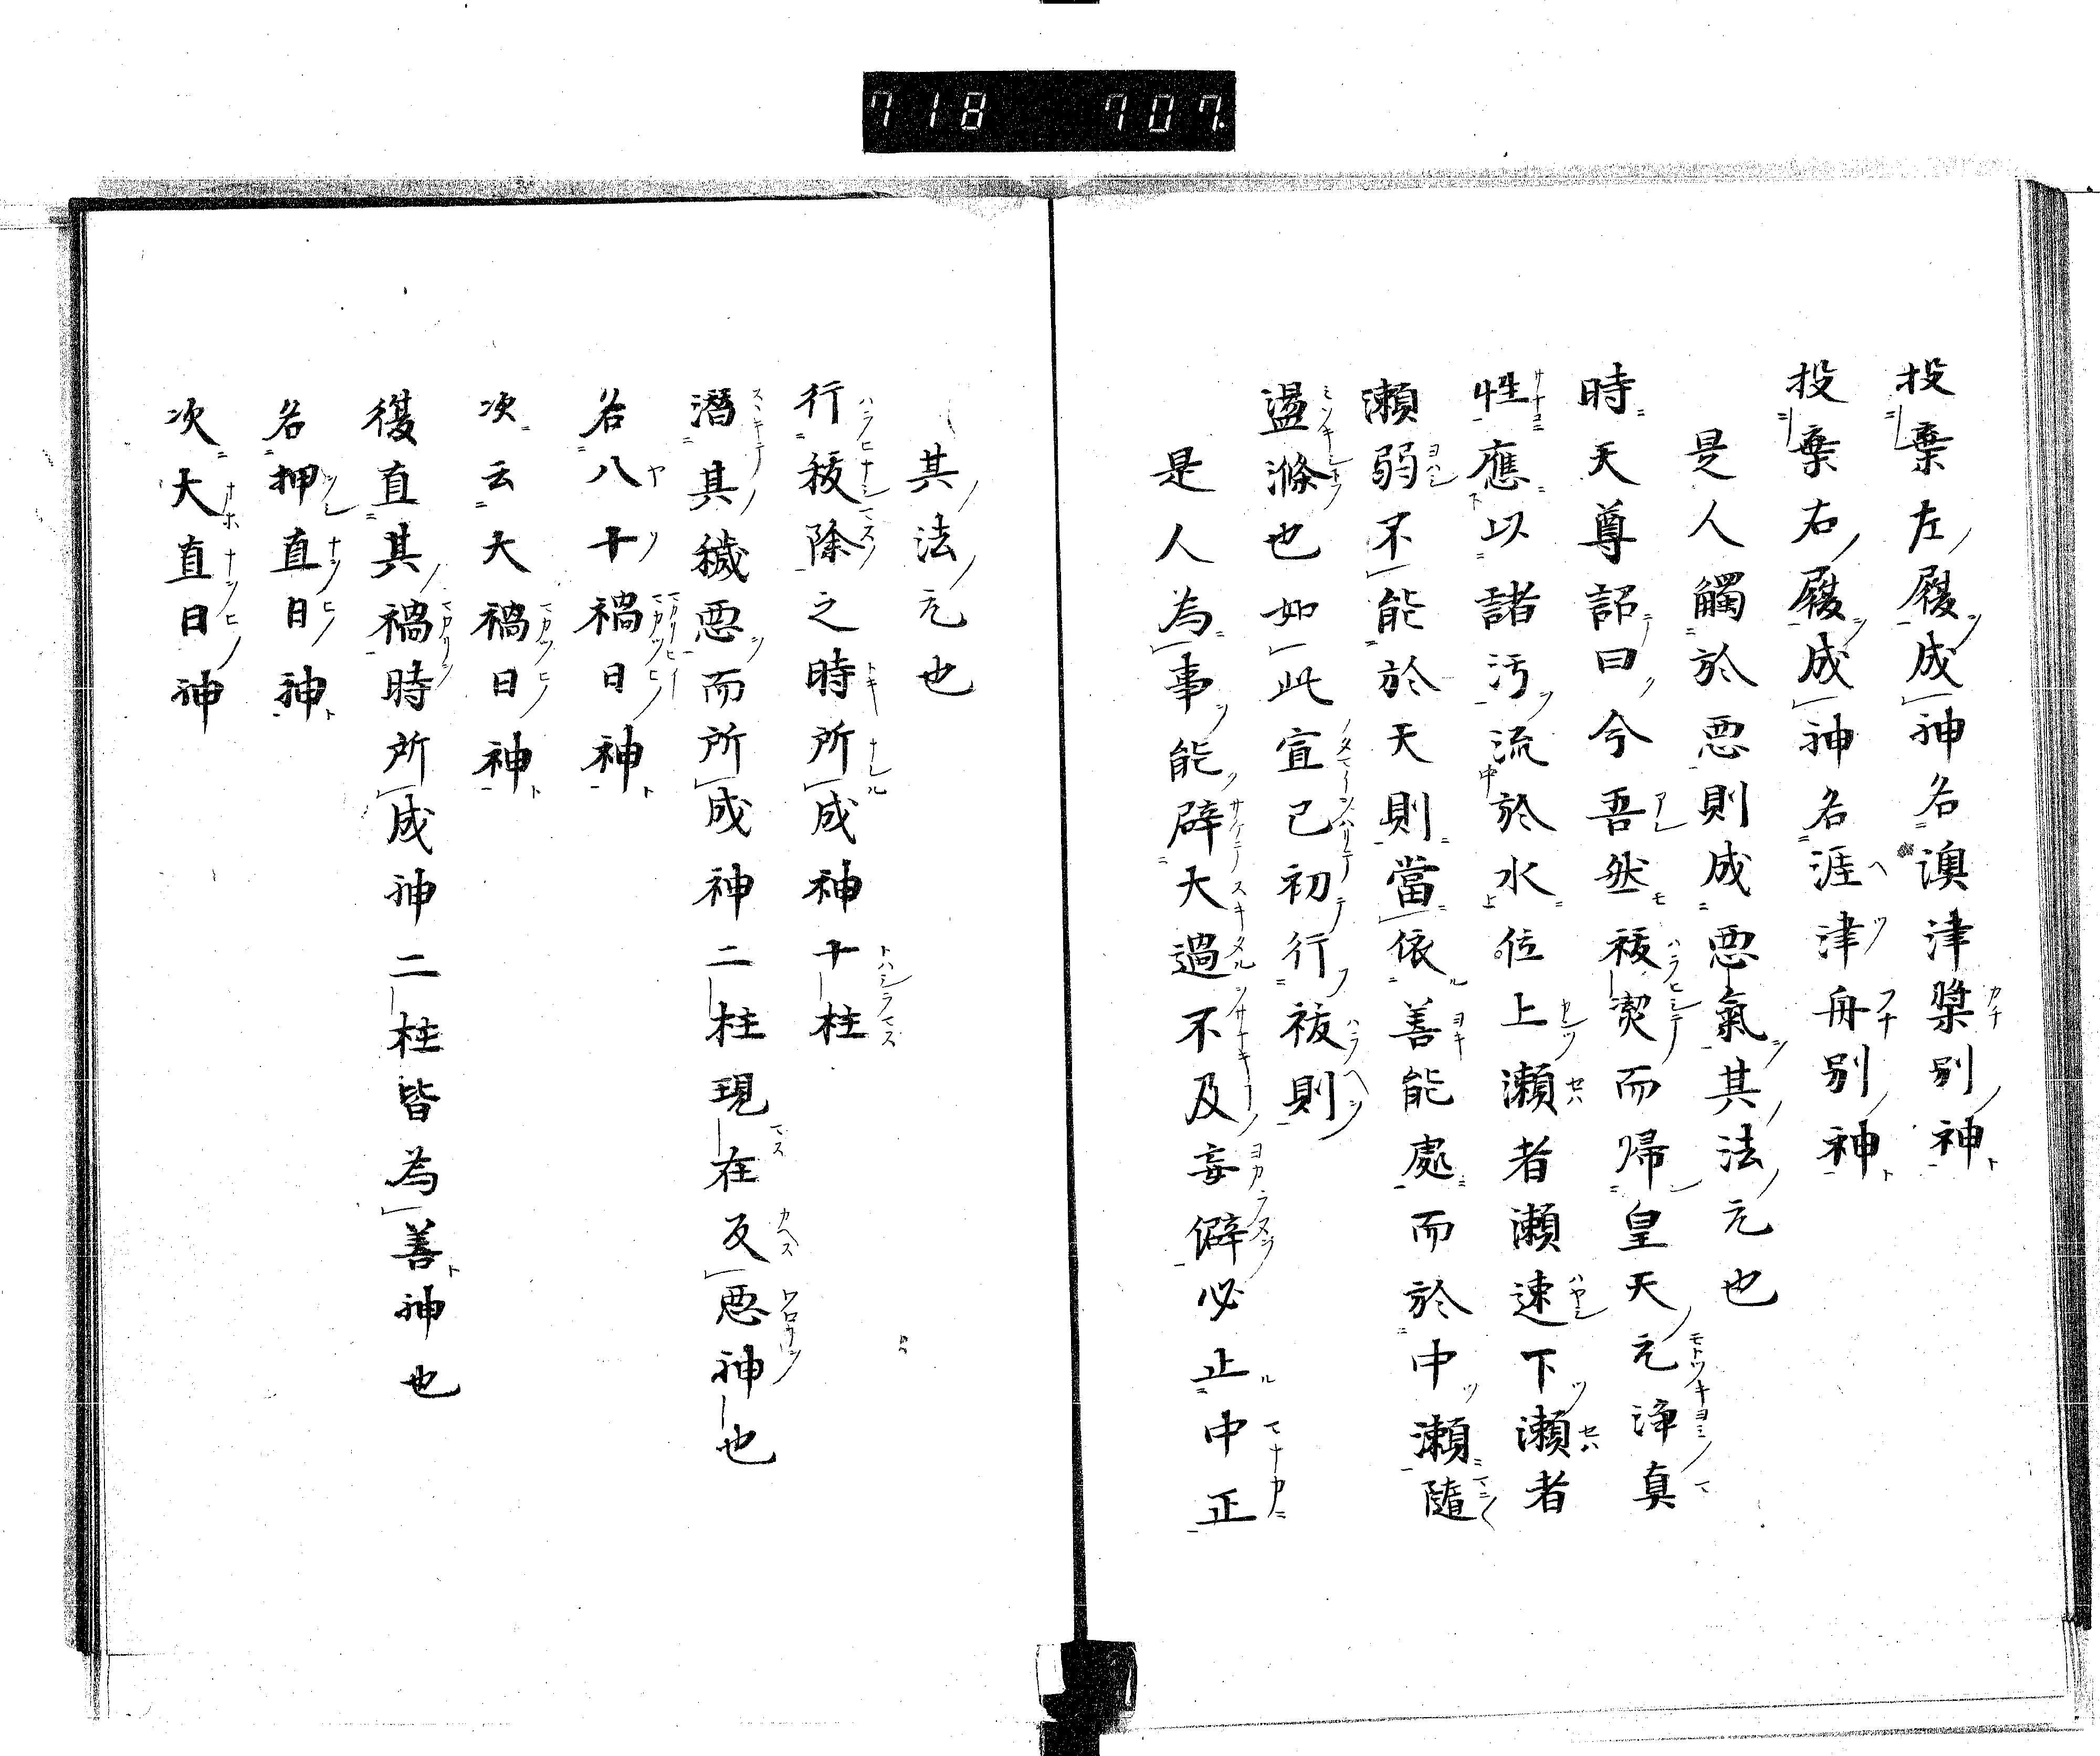 718 707.
投棄左履成神名澳津槳別神
投棄右履成神名涯津舟別神
是人觸於悪則成悪氣其法元也
時天尊詔曰今吾然祓潔而帰皇天元浄真
性應以諸汚流於水位上瀬者瀬速下瀬者
瀬弱不能於天則當依善能處而於中瀬随
盪滌也如此宣已初行祓則
是人為事能辟大過不及妄僻必止中正
其法元也
行祓除之時所成神十柱
潜其穢悪而所成神二柱現在反悪神也
名八十禍日神
次云大禍日神
復直其禍時所成神二柱皆為善神也
名押直日神
次大直日神